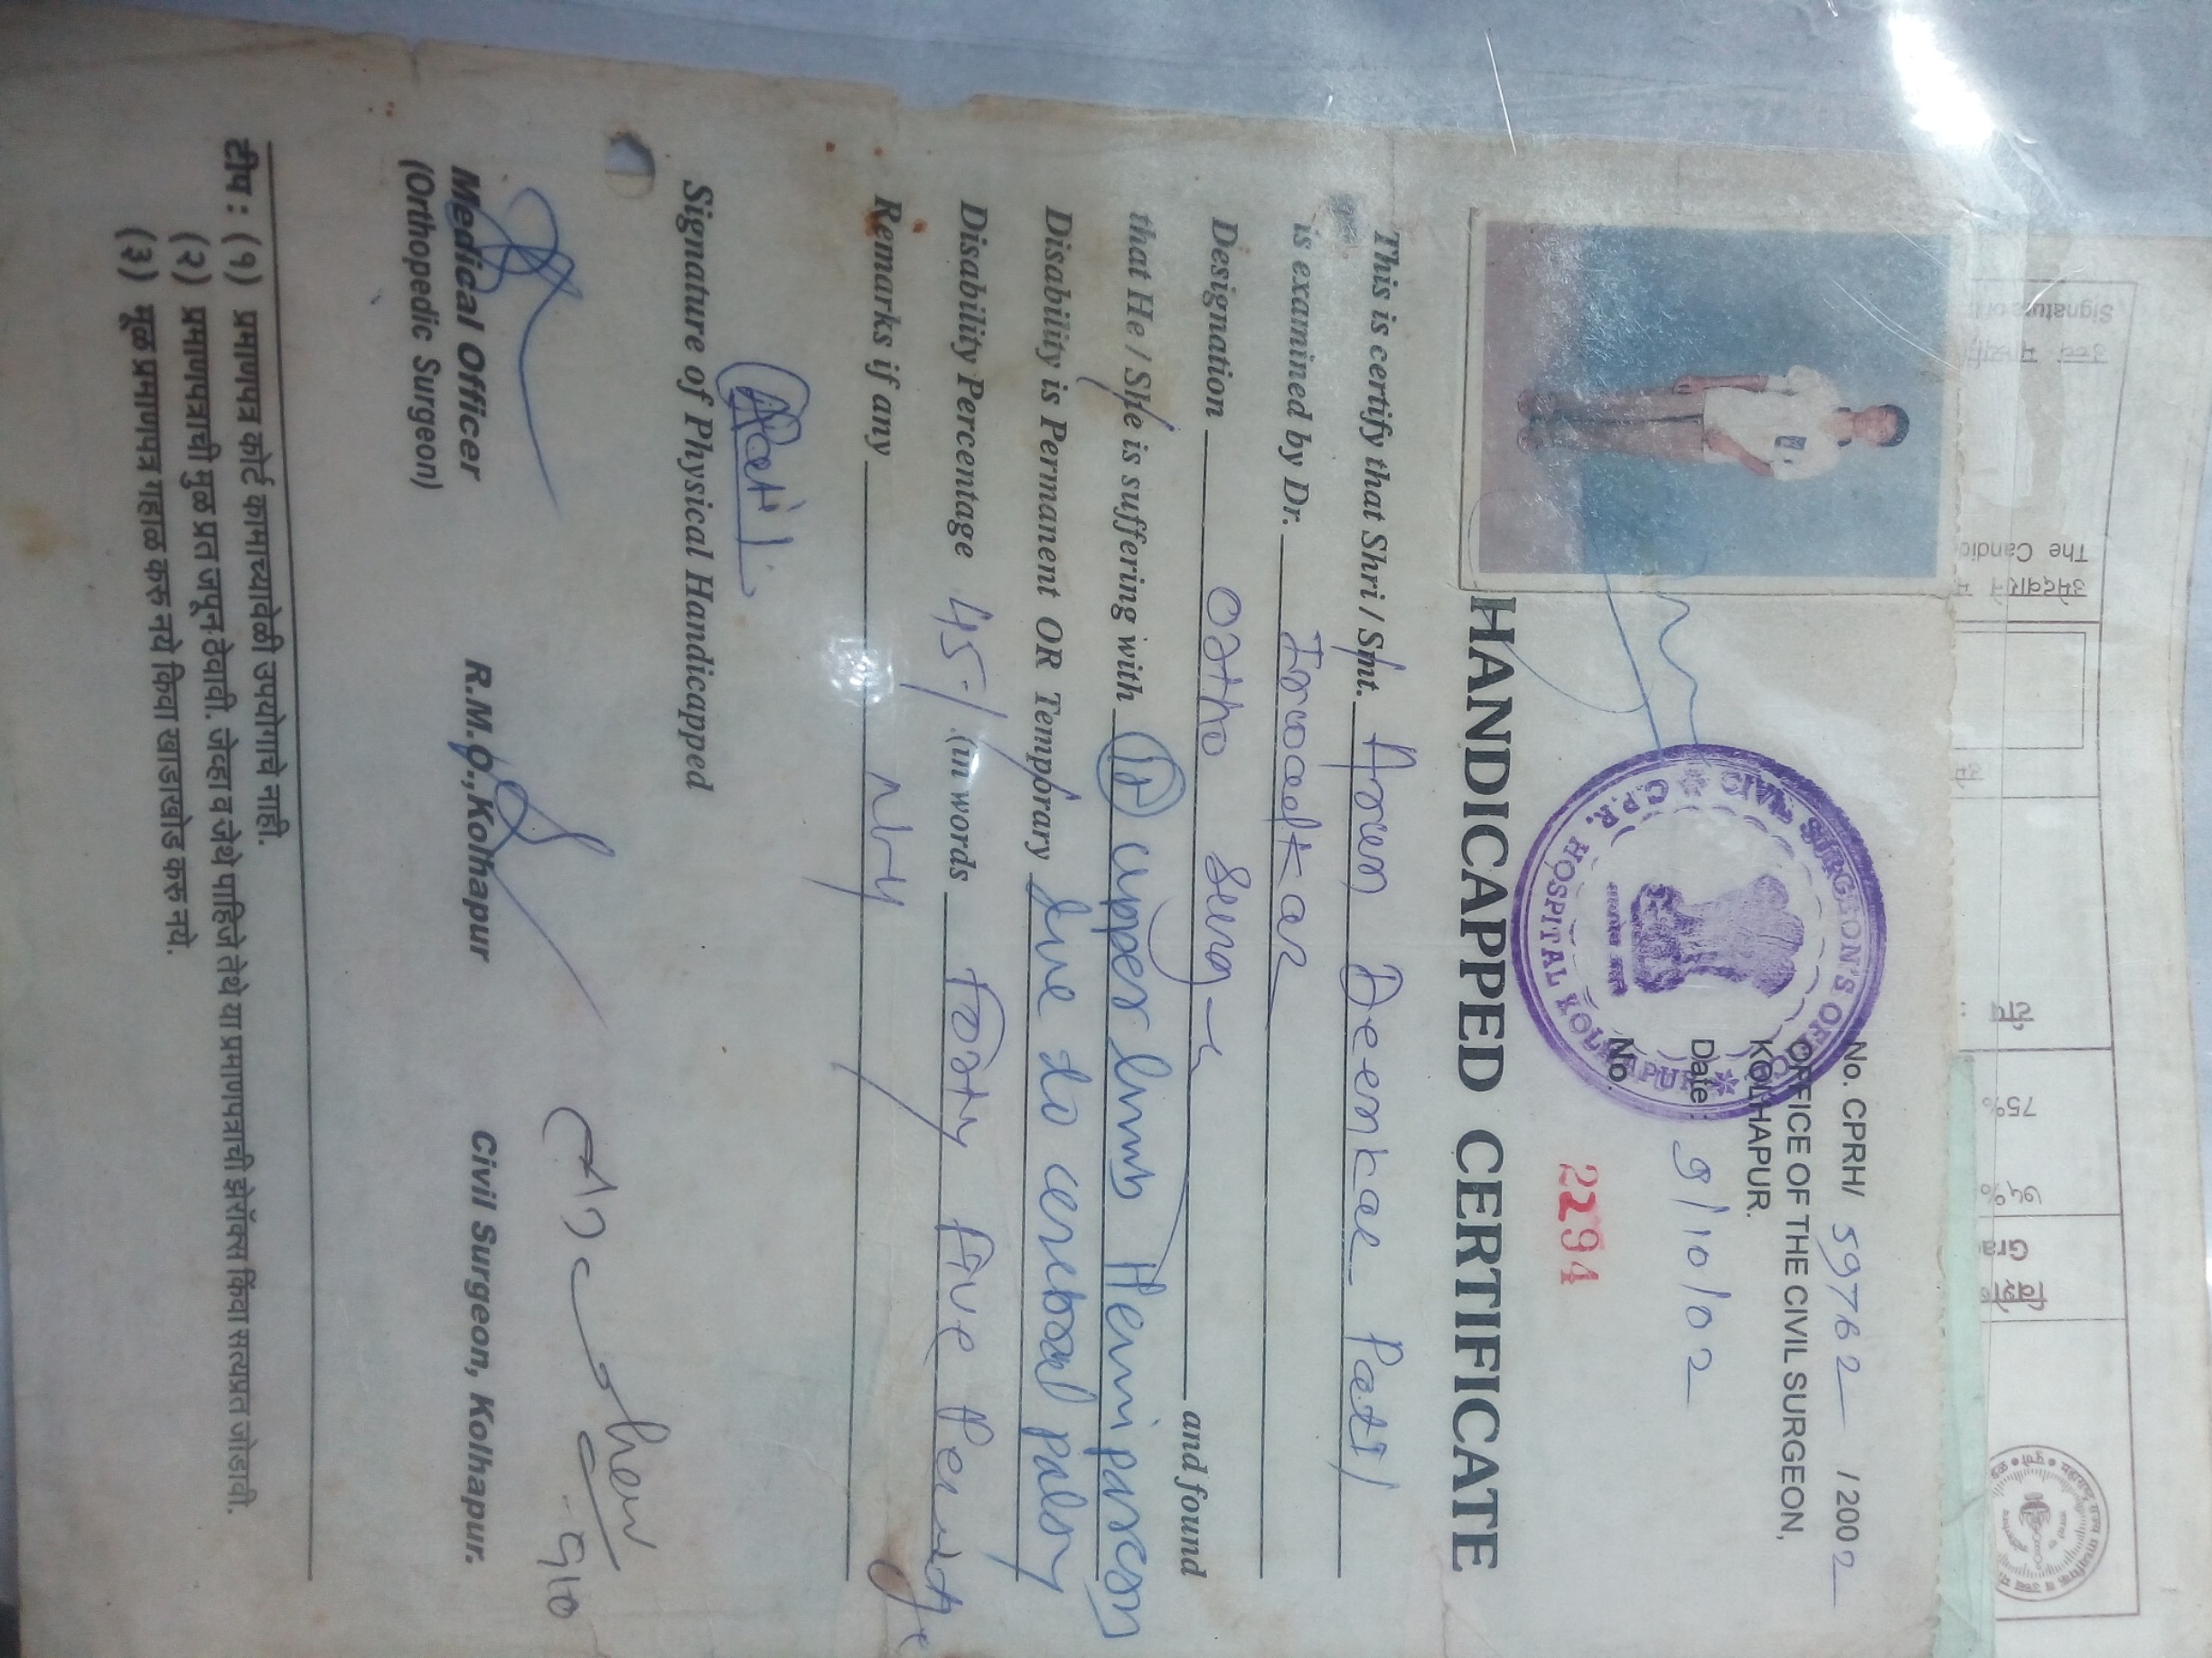 No. CPRH/ 59762 / 2002
OFFICE OF THE CIVIL SURGEON,
KOLHAPUR.
Date : 9/10/02
No. 2294
CIVIL SURGEON'S OFFICE
C.P.R. HOSPITAL KOLHAPUR
HANDICAPPED CERTIFICATE
This is certify that Shri / Smt. Deenkar Patil
is examined by Dr.
Designation Ortho Surg and found
that He / She is suffering with Rt upper limb Hemiparesis
Disability is Permanent OR Temporary due to cerebral palsy
Disability Percentage 45% (in words Forty Five
Remarks if any
Patil
Signature of Physical Handicapped
Medical Officer
(Orthopedic Surgeon)
R.M.O., Kolhapur
Civil Surgeon, Kolhapur.
9/10
टीप : (१) प्रमाणपत्र कोर्ट कामाच्यावेळी उपयोगाचे नाही.
(२) प्रमाणपत्राची मुळ प्रत जपून ठेवावी. जेव्हा व जेथे पाहिजे तेथे या प्रमाणपत्राची झेरॉक्स किंवा सत्यप्रत जोडावी.
(३) मूळ प्रमाणपत्र गहाळ करु नये किंवा खाडाखोड करु नये.
Signature of
The Candid
उमेदवाराने
टीप :
75%
७५%
Gra